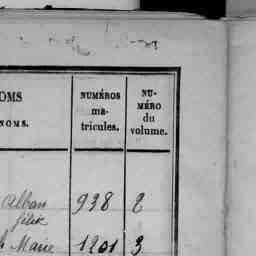 OMS
NOMS.
NUMÉROS
ma-
tricules.
NU-
MÉRO
du
volume.
Alban 938 2
félix
Marie 1201 3